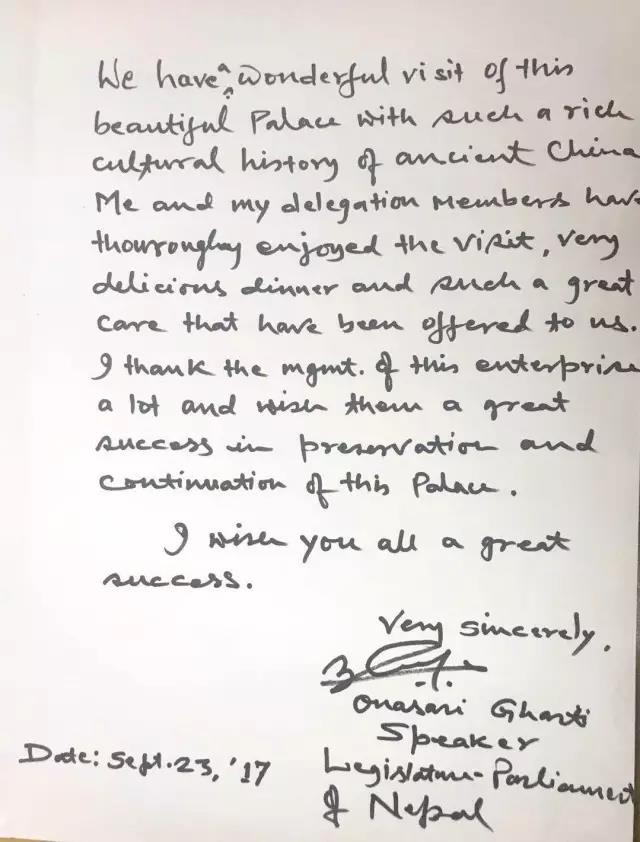 We have a wonderful visit of this
beautiful Palace with such a rich
cultural history of ancient China
Me and my delegation members have
thouroughay enjoyed the visit, very
delicious dinner and such a great
care that have been offered to us.
I thank the mgmt. of this enterprise
a lot and wish them a great
success in preservation and
continuation of this Palace.
I wish you all a great
success.
Very sincerely,
Onasari Gharti
Speaker
Date: Sept. 23, '17
Legislature-Parliament
of Nepal